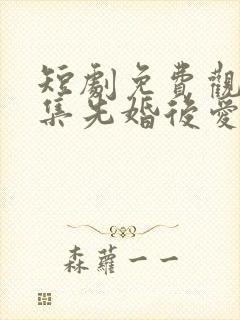 短劇免費觀
集先婚後愛
森蘿一一